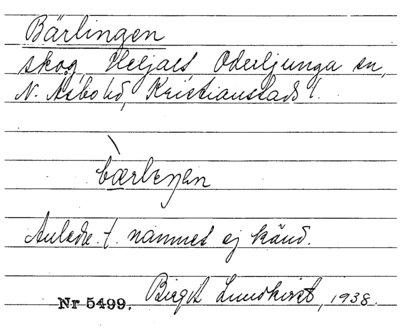 Bärlingen
skog Heljalt Oderljunga sn,
N. Åsbo hd, Kristianstads l.
bærleŋen
Anledn. t. namnet ej känd.
Nr 5499. Birgit Lundkvist, 1938.